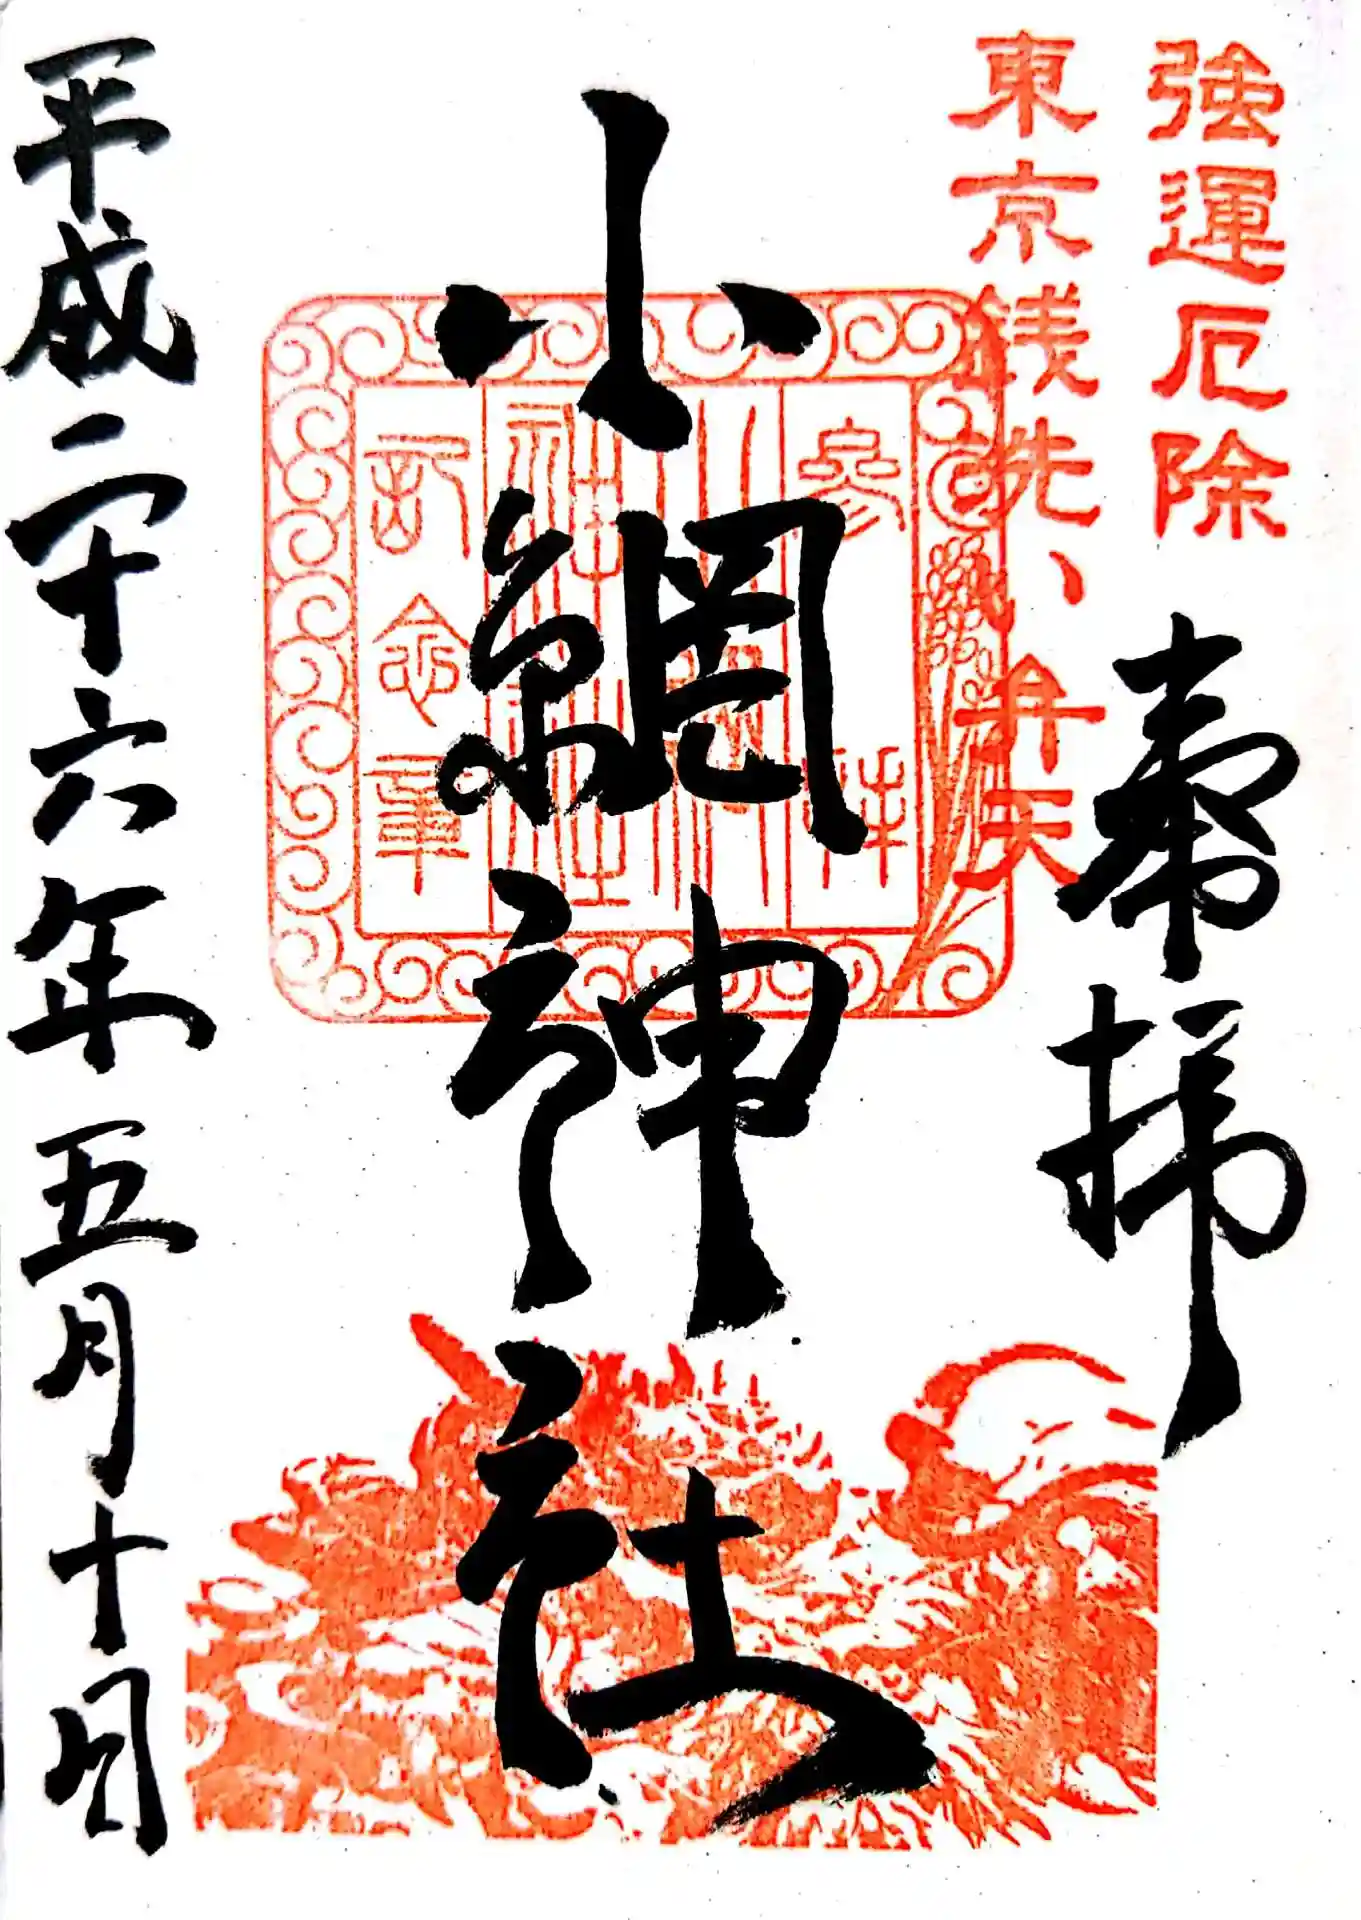 強運厄除
東京銭洗い弁天
奉拝
小網神社
参拝
小網
神社
記念章
平成二十六年五月十日